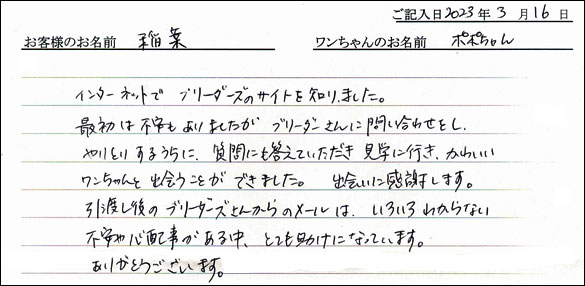 ご記入日2023年3月16日
お客様のお名前 稲葉 ワンちゃんのお名前 ポポちゃん
インターネットで ブリーダーズのサイトを知りました。
最初は不安もありましたが ブリーダーさんに問い合わせをし、
やりとりするうちに、質問にも答えていただき 見学に行き、かわいい
ワンちゃんと出会うことができました。 出会いに感謝します。
引渡し後のブリーダーズさんからのメールは、いろいろわからない
不安や心配事がある中、とても助けになっています。
ありがとうございます。